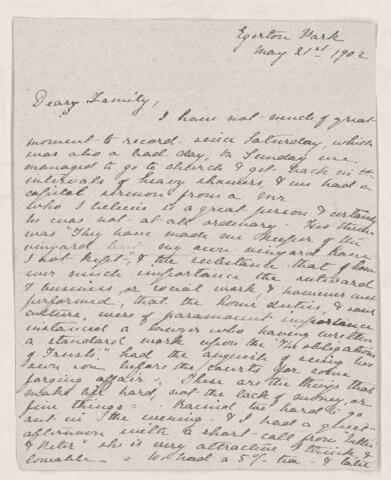 Egerton Park
May 21st 1902
Dearg Family,
I have not much of great
moment to record since Saturday, which
was also a bad day. On Sunday we
managed to go to church & get back in the
intervals of heavy showers, & we had a
capital sermon from a Mr
who I believe is a great person & certainly
he was not at all ordinary. His theme
was "They have made me Keeper of the
vineyards but my own vineyard have
I not kept", & the substance that of how
ever much importance the outward
of business, or social work, & however well
performed, that the home duties, & soul
culture, were of paramount importance
instanced a lawyer who having written
a standard work upon the "The obligations
of Trusts" had the anguish of seeing his
own son before the courts for some
forging affair. These are the things that
make life hard, not the lack of money, or
fine things. Rained too hard to go
out in the evening. & I had a quiet
afternoon with a short call from
& Peter" she is very attractive I think &
lovable. We had a 5 tea & later